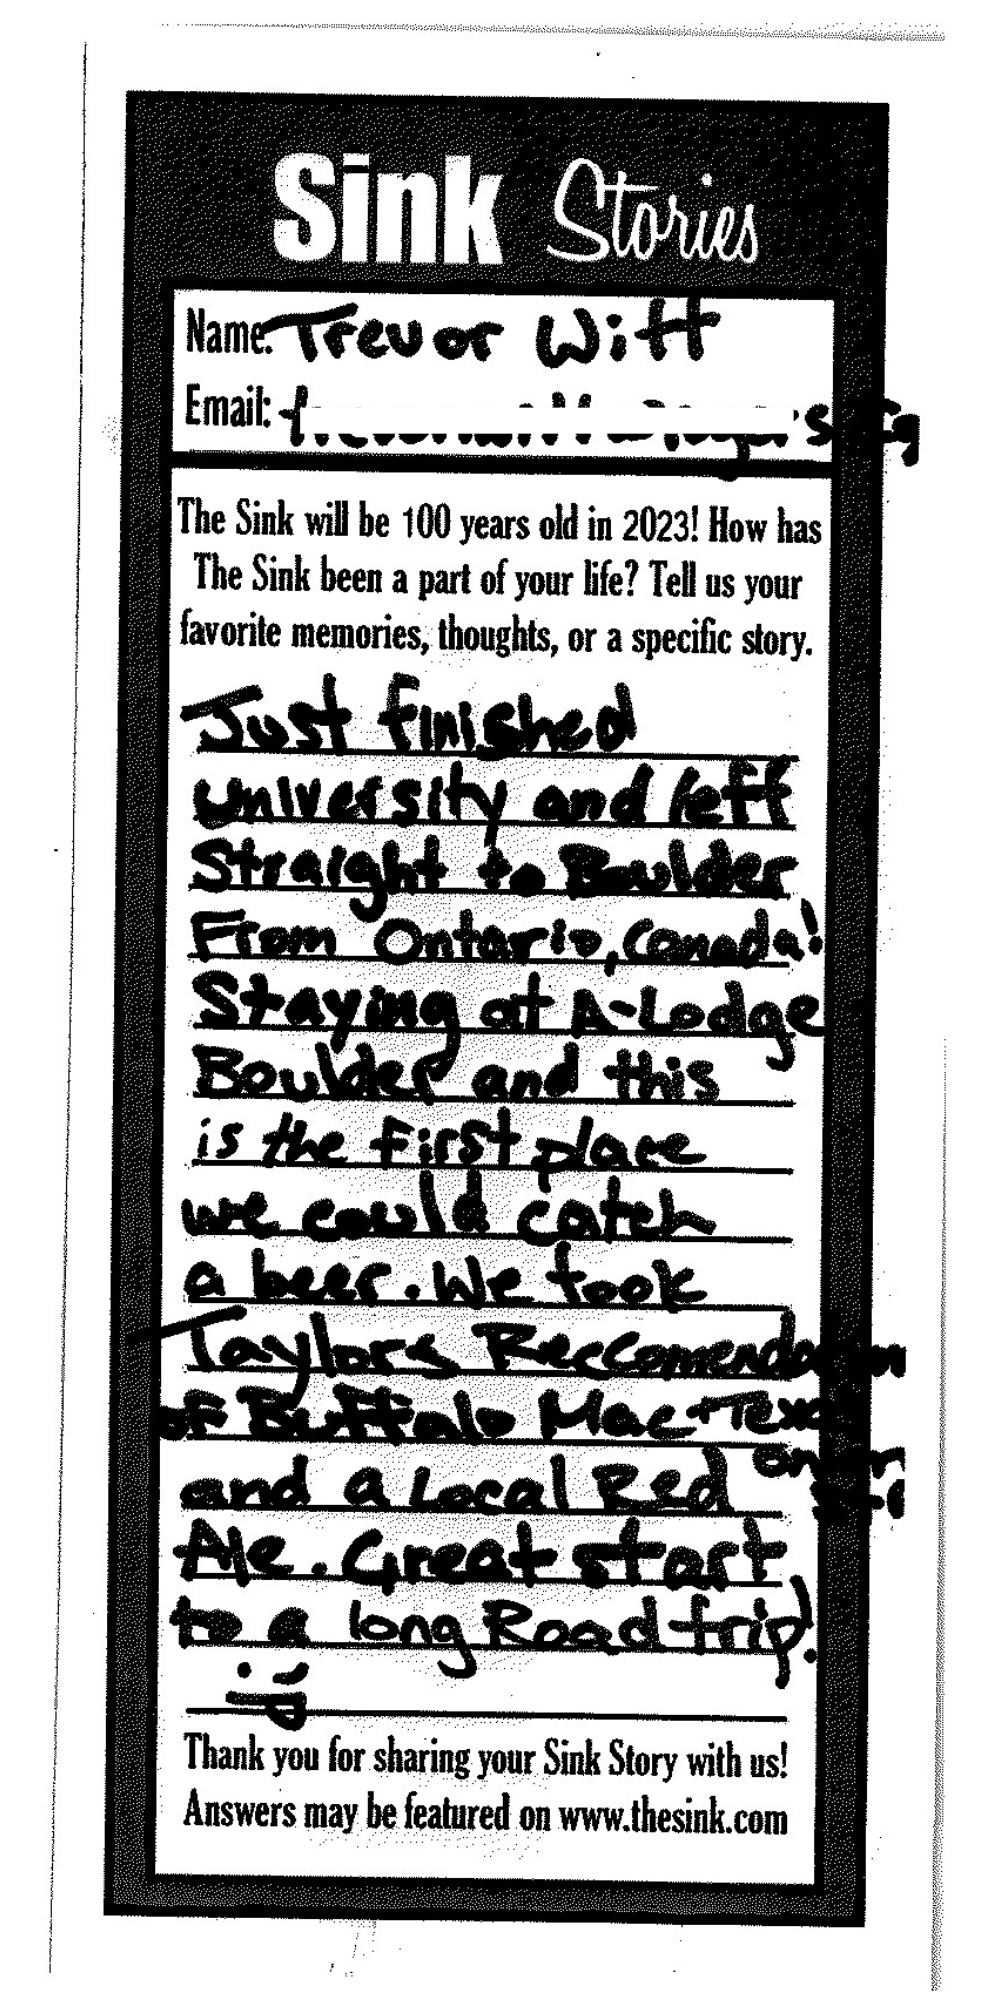 Sink Stories
Name: Trevor Witt
Email:
The Sink will be 100 years old in 2023! How has
The Sink been a part of your life? Tell us your
favorite memories, thoughts, or a specific story.
Just finished
university and left
Straight to Boulder
From Ontario, Canada!
Staying at A-Lodge
Boulder and this
is the first place
we could catch
a beer. We took
Taylors Reccomendation
of Buffalo Mac + Texas
and a Local Red
Ale. Great start
to a long Road trip!
:)
Thank you for sharing your Sink Story with us!
Answers may be featured on www.thesink.com